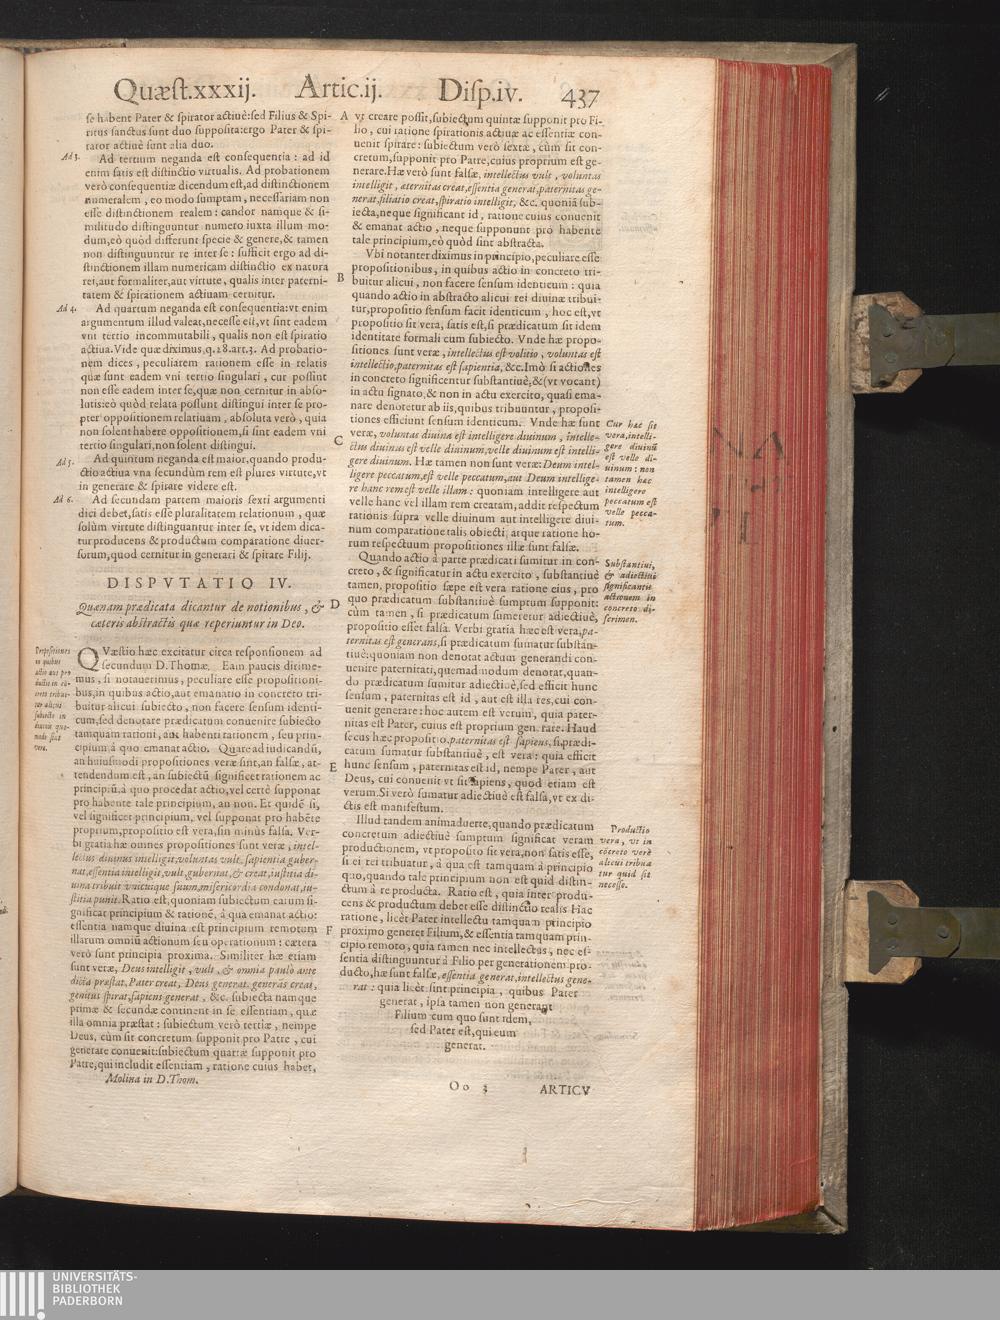 Quæst.xxxij. Artic.ij. Disp.iv. 437
se habent Pater & spirator actiuè: sed Filius & Spi-
ritus sanctus sunt duo supposita: ergo Pater & spi-
rator actiuè sunt alia duo.
Ad 3.
Ad tertium neganda est consequentia: ad id
enim satis est distinctio virtualis. Ad probationem
verò consequentiæ dicendum est, ad distinctionem
numeralem, eo modo sumptam, necessariam non
esse distinctionem realem: candor namque & si-
militudo distinguuntur numero iuxta illum mo-
dum, eò quòd differunt specie & genere, & tamen
non distinguuntur re inter se: sufficit ergo ad di-
stinctionem illam numericam distinctio ex natura
rei, aut formaliter, aut virtute, qualis inter paterni-
tatem & spirationem actiuam cernitur.
Ad 4.
Ad quartum neganda est consequentia: vt enim
argumentum illud valeat, necesse est, vt sint eadem
vni tertio incommutabili, qualis non est spiratio
actiua. Vide quæ diximus, q. 28. art. 3. Ad probatio-
nem dices, peculiarem rationem esse in relatis
quæ sunt eadem vni tertio singulari, cur possint
non esse eadem inter se, quæ non cernitur in abso-
lutis: eò quòd relata possunt distingui inter se pro-
pter oppositionem relatiuam, absoluta verò, quia
non solent habere oppositionem, si sint eadem vni
tertio singulari, non solent distingui.
Ad 5.
Ad quintum neganda est maior, quando produ-
ctio actiua vna secundùm rem est plures virtute, vt
in generare & spirare videre est.
Ad 6.
Ad secundam partem maioris sexti argumenti
dici debet, satis esse pluralitatem relationum, quæ
solùm virtute distinguantur inter se, vt idem dica-
tur producens & productum comparatione diuer-
sorum, quod cernitur in generari & spirare Filij.
DISPVTATIO IV.
Quænam prædicata dicantur de notionibus, &
cæteris abstractis quæ reperiuntur in Deo.
Propositiones
in quibus
actio aut pro
ductio in cō-
creto tribui-
tur alicui
subiecto in
diuinis quo-
modo sint
veræ.
QVæstio hæc excitatur circa responsionem ad
secundum D. Thomæ. Eam paucis dirime-
mus, si notauerimus, peculiare esse propositioni-
bus, in quibus actio, aut emanatio in concreto tri-
buitur alicui subiecto, non facere sensum identi-
cum, sed denotare prædicatum conuenire subiecto
tamquam rationi, aut habenti rationem, seu prin-
cipium à quo emanat actio. Quare ad iudicandū,
an huiusmodi propositiones veræ sint, an falsæ, at-
tendendum est, an subiectū significet rationem ac
principiū, à quo procedat actio, vel certè supponat
pro habente tale principium, an non. Et quidē si,
vel significet principium, vel supponat pro habēte
proprium, propositio est vera, sin minùs falsa. Ver-
bi gratia hæ omnes propositiones sunt veræ, intel-
lectus diuinus intelligit, voluntas vult, sapientia guber-
nat, essentia intelligit, vult, gubernat, & creat, iustitia di-
uina tribuit vnicuique suum, misericordia condonat, iu-
stitia punit. Ratio est, quoniam subiectum earum si-
gnificat principium & rationē, à qua emanat actio:
essentia namque diuina est principium remotum
illarum omniū actionum seu operationum: cætera
verò sunt principia proxima. Similiter hæ etiam
sunt veræ, Deus intelligit, vult, & omnia paulò ante
dicta præstat, Pater creat, Deus generat, generās creat,
genitus spirat, sapiens generat, &c. subiecta namque
primæ & secundæ continent in se essentiam, quæ
illa omnia præstat: subiectum verò tertiæ, nempe
Deus, cùm sit concretum supponit pro Patre, cui
generare conuenit: subiectum quartæ supponit pro
Patre, qui includit essentiam, ratione cuius habet,
Molina in D. Thom.
A
B
C
D
E
F
vt creare possit, subiectum quintæ supponit pro Fi-
lio, cui ratione spirationis actiuæ ac essentiæ con-
uenit spirare: subiectum verò sextæ, cùm sit con-
cretum, supponit pro Patre, cuius proprium est ge-
nerare. Hæ verò sunt falsæ, intellectus vult, voluntas
intelligit, æternitas creat, essentia generat, paternitas ge-
nerat, filiatio creat, spiratio intelligit, &c. quoniā sub-
iecta, neque significant id, ratione cuius conuenit
& emanat actio, neque supponunt pro habente
tale principium, eò quòd sint abstracta.
Vbi notanter diximus in principio, peculiare esse
propositionibus, in quibus actio in concreto tri-
buitur alicui, non facere sensum identicum: quia
quando actio in abstracto alicui rei diuinæ tribui-
tur, propositio sensum facit identicum, hoc est, vt
propositio sit vera, satis est, si prædicatum sit idem
identitate formali cum subiecto. Vnde hæ propo-
sitiones sunt veræ, intellectus est volitio, voluntas est
intellectio, paternitas est sapientia, &c. Imò si actiones
in concreto significentur substantiuè, & (vt vocant)
in actu signato, & non in actu exercito, quasi ema-
nare denotetur ab iis, quibus tribuuntur, proposi-
tiones efficiunt sensum identicum. Vnde hæ sunt
veræ, voluntas diuina est intelligere diuinum, intelle-
ctus diuinus est velle diuinum, velle diuinum est intelli-
gere diuinum. Hæ tamen non sunt veræ: Deum intel-
ligere peccatum, est velle peccatum, aut Deum intellige-
re hanc rem est velle illam: quoniam intelligere aut
velle hanc vel illam rem creatam, addit respectum
rationis supra velle diuinum aut intelligere diui-
num comparatione talis obiecti, atque ratione ho-
rum respectuum propositiones illæ sunt falsæ.
Cur hæc sit
vera, intelli-
gere diuinū
est velle di-
uinum: non
tamen hæc
intelligere
peccatum est
velle pecca-
tum.
Quando actio à parte prædicati sumitur in con-
creto, & significatur in actu exercito, substantiuè
tamen, propositio sæpe est vera ratione eius, pro
quo prædicatum substantiuè sumptum supponit:
cùm tamen, si prædicatum sumeretur adiectiuè,
propositio esset falsa. Verbi gratia hæc est vera, pa-
ternitas est generans, si prædicatum sumatur substan-
tiuè: quoniam non denotat actum generandi con-
uenire paternitati, quemadmodum denotat, quan-
do prædicatum sumitur adiectiuè, sed efficit hunc
sensum, paternitas est id, aut est illa res, cui con-
uenit generare: hoc autem est verum, quia pater-
nitas est Pater, cuius est proprium generare. Haud
secus hæc propositio, paternitas est sapiens, si prædi-
catum sumatur substantiuè, est vera: quia efficit
hunc sensum, paternitas est id, nempe Pater, aut
Deus, cui conuenit vt sit sapiens, quod etiam est
verum. Si verò sumatur adiectiuè est falsa, vt ex di-
ctis est manifestum.
Substantiui,
& adiectiui
significantis
actionem in
concreto di-
scrimen.
Illud tandem animaduerte, quando prædicatum
concretum adiectiuè sumptum significat veram
productionem, vt propositio sit vera, non satis esse,
si ei rei tribuatur, à qua est tamquam à principio
quo, quando tale principium non est quid distin-
ctum à re producta. Ratio est, quia inter produ-
cens & productum debet esse distinctio realis Hac
ratione, licèt Pater intellectu tamquam principio
proximo generet Filium, & essentia tamquam prin-
cipio remoto, quia tamen nec intellectus, nec es-
sentia distinguuntur à Filio per generationem pro-
ducto, hæ sunt falsæ, essentia generat, intellectus gene-
rat: quia licèt sint principia, quibus Pater
generat, ipsa tamen non generant
Filium cum quo sunt idem,
sed Pater est, qui eum
generat.
Productio
vera, vt in
cōcreto verè
alicui tribua
tur quid sit
necesse.
Oo 3 ARTICV
UNIVERSITÄTS-
BIBLIOTHEK
PADERBORN